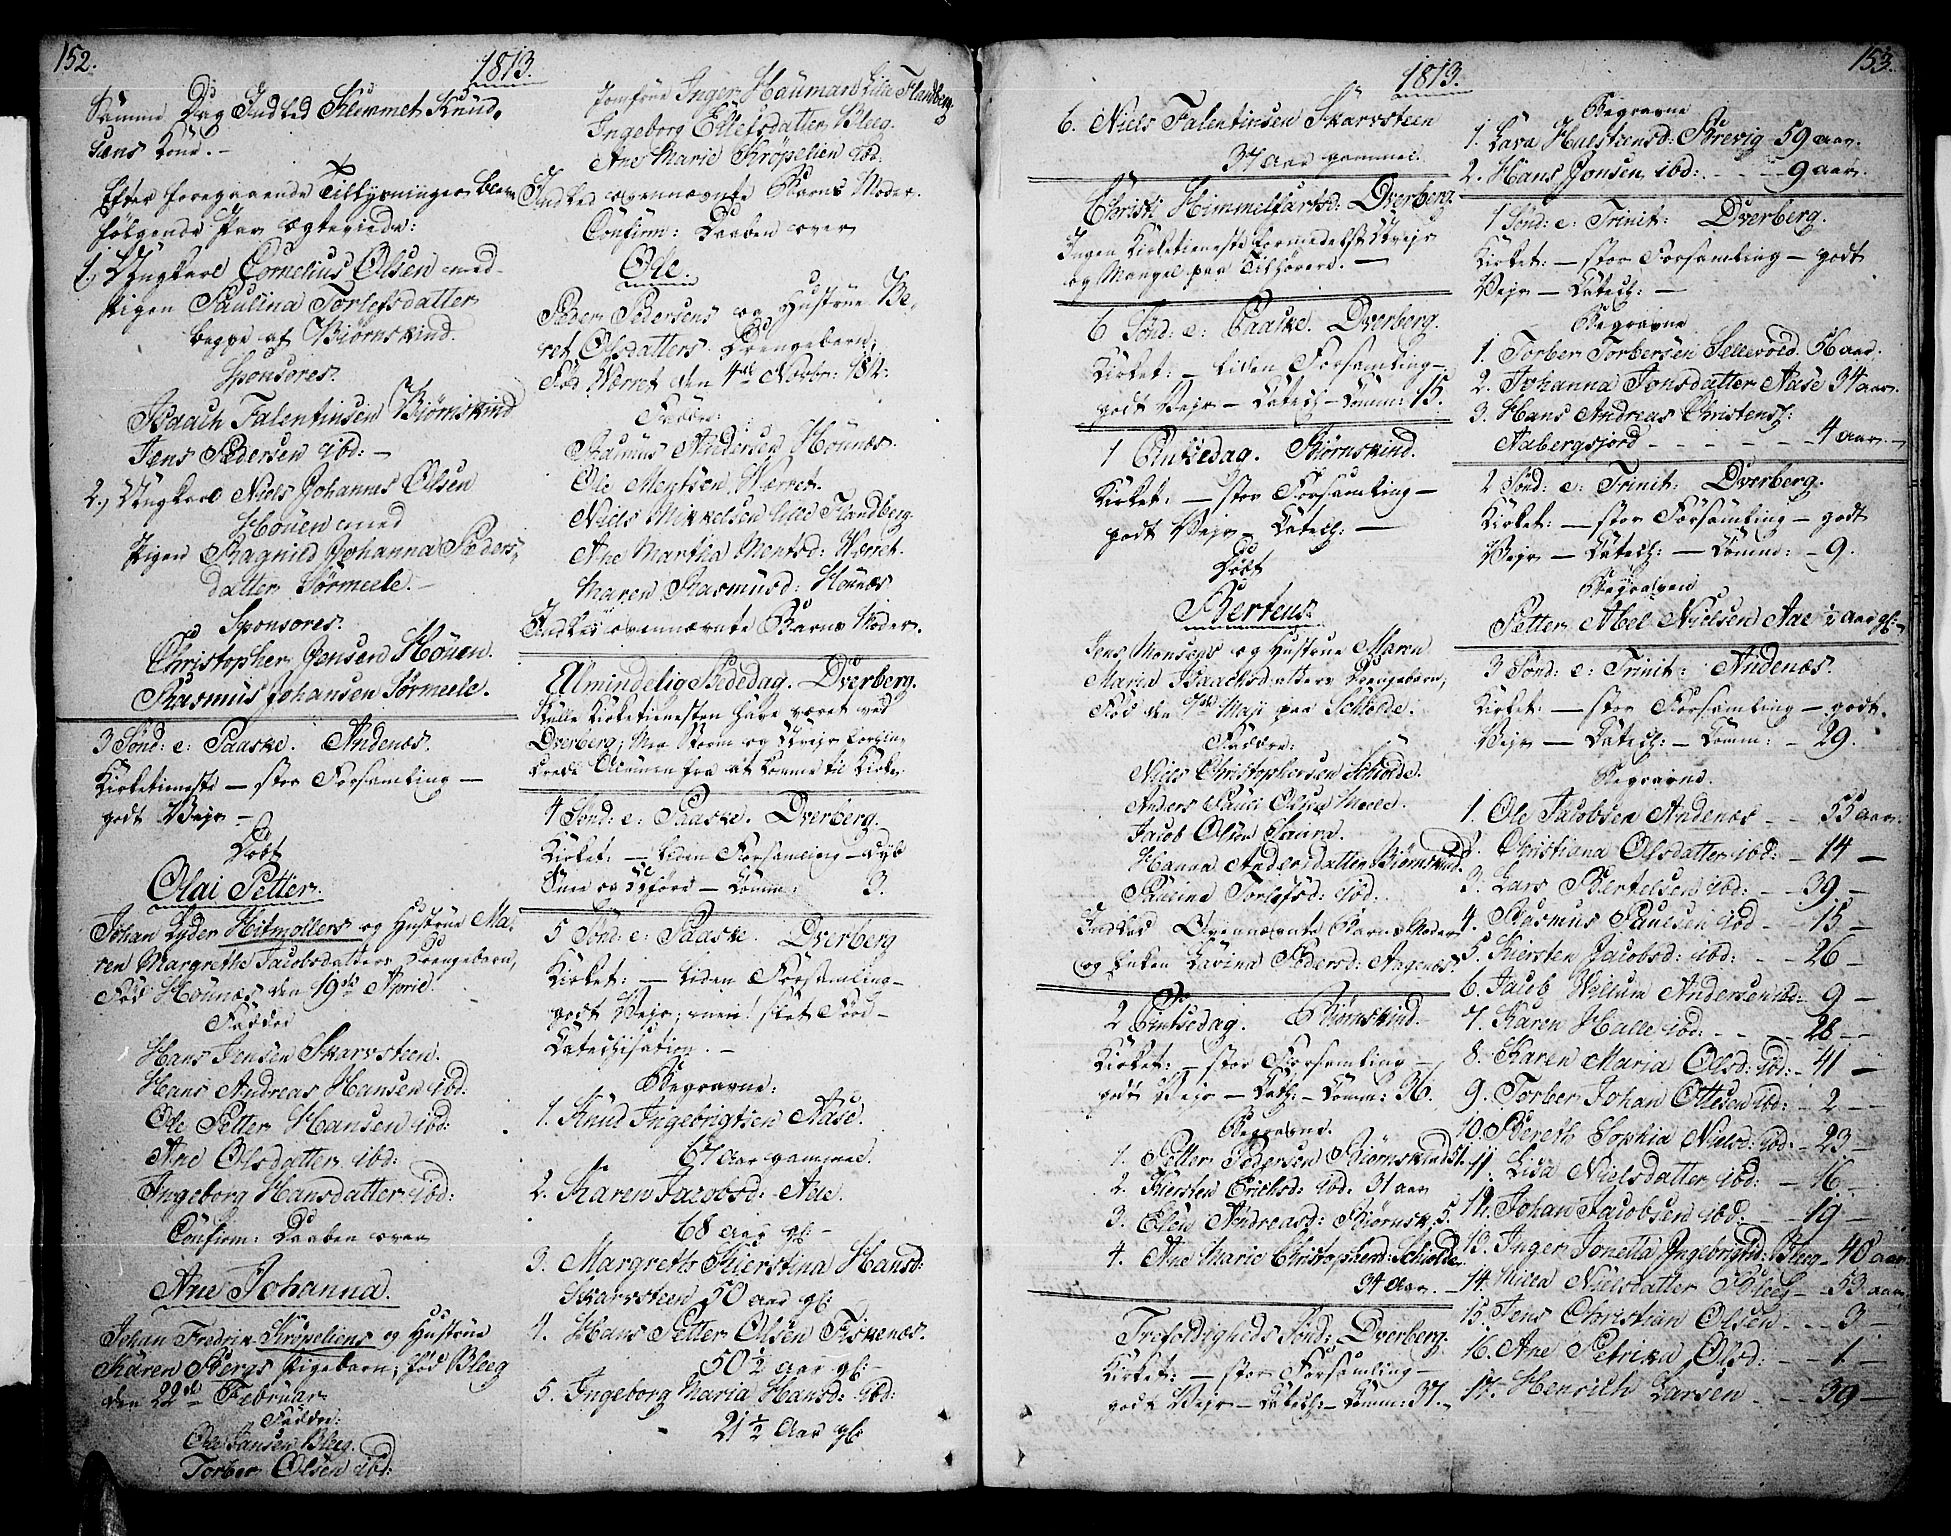 152.
1813.
Samme Dag Indled Klemmet Knud,
sens Kone. -
Efter foregaaende Tillysninger bleve
følgende Par ægteviede:
1., Ungkarl Cornelius Olsen med
Pigen Paulina Torlefsdatter
begge af Biørnskind.
Sponsores.
Isaach Falentinsen Biørnskind
Jens Pedersen ibd: -
2., Ungkarl Niels Johannes Olsen
Höüen med
Pigen Ragnild Johanna Peders,
datter Sörmeele. -
Sponsores.
Christopher Jensen Höüen.
Rasmus Johansen Sörmeele.
3 Sönd: e: Paaske. Andenæs.
Kirketieneste - stor Forsamling -
godt Vejr -
Døbt
Olai Petter.
Johan Lyder Hitmøllers og Hustrue Ma,
ren Margrethe Jacobsdatters Drengebarn,
Föd Höünæs den 19de April.
Faddere
Hans Jensen Skarvsteen.
Hans Andreas Hansen ibd:
Ole Petter Hansen ibd:
Ane Olsdatter ibd:
Ingeborg Hansdatter ibd:
Confirm: Daaben over
Ane Johanna.
Johan Fredrik Kröpeliens og Hustrue
Karen Bergs Pigebarn; föd Bleeg
den 22de Februar
Fadder:
Ole Jansen Bleeg.
Torber Olsen ibd:
Jomfrue Inger Höuman Lille Flandberg
Ingeborg Ellefsdatter Bleeg.
Ane Marie Kröpelien ibd.
Indled ovennævnte Barns Moder.
Confirm: Daaben over
Ole.
Peder Pedersens og Hustrue Be,
ret Olsdatters Drengebarn;
Föd Værret den 4de Novbr: 1812.
Faddr:
Rasmus Andersen Höünæs.
Ole Mentsen Værret.
Niels Mikkelsen Lille Flandberg.
Ane Martha Mentsd: Værret.
Maren Rasmusd: Höünæs
Indled ovennævnte Barns Moder.
Almindelig Bededag. Dverberg.
Skulle Kirketienesten have været ved
Dverberg; Men Storm og Uvejr forhin,
drede Almuen fra at komme til Kirke.
4 Sönd: e: Paaske. Dverberg.
Kirket: - liden Forsamling - dyb
Snee og Uföre - Comm: 3.
5 Sönd: e: Paaske. Dverberg
Kirket: - liden Forsamling -
godt Vejr; men slet Före -
Catechisation. -
Begravne:
1. Knud Ingebrigtsen Aase.
67 Aar gammel.
2. Karen Jacobsd: Ade.
68 Aar gl: -
3. Margreth Kierstina Hansd:
Skarvsteen 50 Aar gl:
4. Hans Petter Olsen Fiskenæs.
50 1/2 Aar gl: -
5. Ingeborg Maria Hansd: ibd:
21 1/2 Aar gl:
153.
1813.
6. Niels Falentinsen Skarvsteen
37 Aar gammel.
Christi Himmelfartsd: Dverberg.
Ingen Kirketieneste formedelst Uvejr
og Mangel paa Tilhörere. -
6 Sönd: e: Paaske. Dverberg.
Kirket: - liden Forsamling -
godt Vejr - Catech: - Comm: 15.
1 Pintsedag. Biørnskind.
Kirket: - stor Forsamling -
godt Vejr - Catech: -
Døbt
Berteus:
Jens Monsens og Hustrue Maren
Maria Isaachsdatters Drengebarn,
Föd den 7de Maji paa Schiolde.
Faddere:
Niels Christophersen Schiolde.
Anders Pauel Olsen Meele.
Jacob Olsen Saura.
Hanna Andersdatter Biørnskind.
Paulina Torlefsd: ibd:
Indled Ovennævnte Barns Moder
og Enken Lavina Pedersd: Aagenæs.
2 Pintsedag. Biørnskind.
Kirket: - stor Forsamling -
godt Vejr - Cath: - Comm: 36.
Begravne.
1. Petter Pedersen Biørnskind 51.
2. Kiersten Erichsd: ibd: 31 aar
3. Elen Andreasd: Biørnsk. 5.
4. Ane Marie Christophersd: Schiolde
34 Aar.
Trefoldigheds Sönd: Dverberg.
Kirket: - stor Forsamling -
godt Vejr - Catech: - Comm: 37.
Begravne
1. Lava Halstensd: Brevig 59 aar.
2. Hans Jonsen ibd: - - - 9 aar.
1 Sönd: e: Trinit: Dverberg.
Kirket: - stor Forsamling - godt
Vejr - Catech: -
Begravne
1. Torber Torbersen Sellevold 56 aar.
2. Johanna Jonsdatter Aase 34 aar.
3. Hans Andreas Christens:
Aabergsjord - - - - - 4 aar. -
2 Sönd: e: Trinit: Dverberg.
Kirket: - stor Forsamling - godt
Vejr - Catech: - Comm: - 9.
Begraven
Petter Abel Nielsen Ade 1/2 Aar gl:
3 Sönd: e: Trinit: Andenæs.
Kirket: - stor Forsamling - godt
Vejr - Catech: - Comm: - 29.
Begravne.
1. Ole Jacobsen Andenæs - - 55 aar.
2. Christiana Olsdatter ibd: - 14 -
3. Lars Bertelsen ibd: - - 39 -
4. Rasmus Paulsen ibd - - 15 -
5. Kiersten Jacobsd: ibd: - - 26 -
6. Jacob Willum Andersen ibd: - 9 -
7. Karen Halle ibd: - - - 28 -
8. Karen Maria Olsd: ibd: - 41 -
9. Torber Johan Ottesen ibd: - 2 -
10. Bereth Sophia Nielsd: ibd: - 23 -
11. Lisa Nielsdatter ibd: - 16 -
12. Johan Jacobsen ibd: - - 19 -
13. Inger Jonetta Ingebrigtsd: Bleeg - 40 aar
14. Nicca Nielsdatter Bleeg - 53 aar
15. Jens Christian Olsen - - 3 -
16. Ane Petrika Olsd: - - 1 -
17. Henrich Larsen - - - 39 -